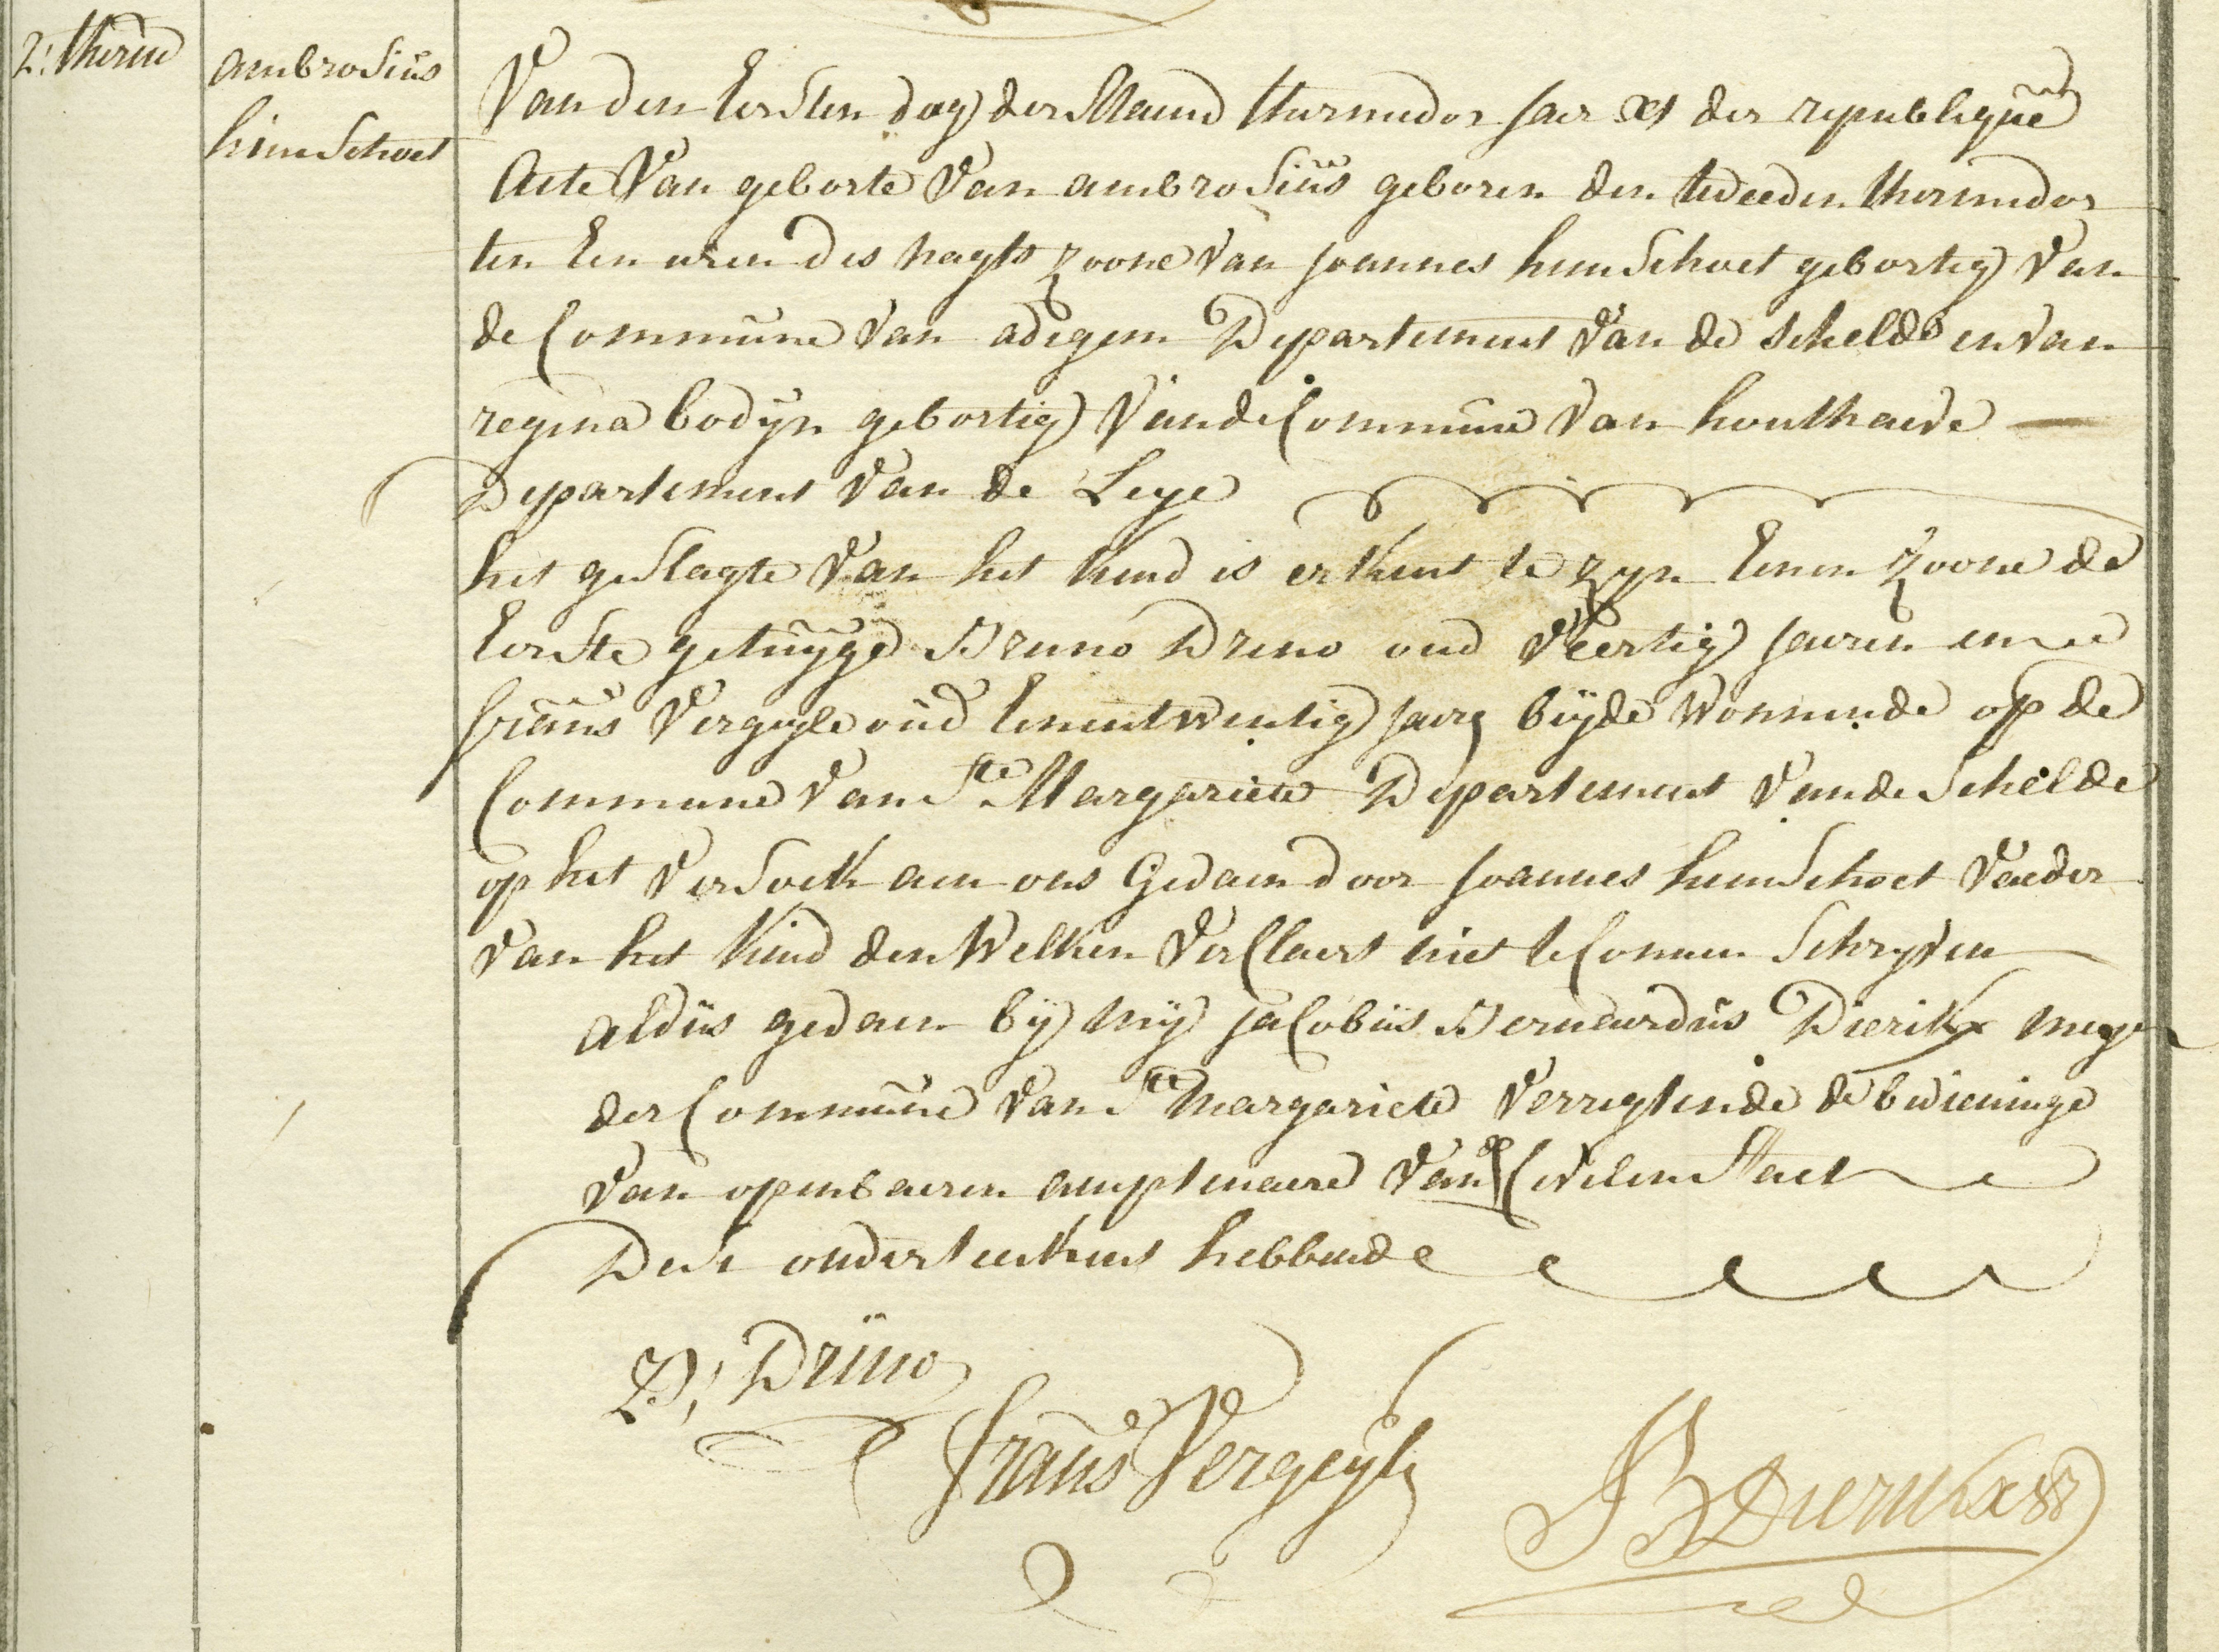 2: therm
ambrosius
himschoet
Van den Eersten dag der Maend thermidor jaer XI der republique
Acte Van geborte Van ambrosius geboren den tweeden thermidor
ten Een uren des nagts zoone Van joannes himschoet gebortig Van
de Commune Van adegem Departement Van de schelde en van
regina bodÿn gebortig Van de Commune Van houthaeve
Departement Van de Leye
het geslagte Van het kind is erkent te zyn Eenen zoone de
Eerste getuÿge Bruno Drino oud Veertig jaeren en
frans Vergeyle oud Eenentwentig jaere bÿde Wonende op de
Commune Van Ste Margariete Departement Van de Schelde
op het Versoek aen ons Gedaen door joannes himschoet Vaeder
Van het kind den Welken Verclaert niet te Connen Schryven
aldus gedaen bÿ mÿ jacobus Bernardus Dierikx meyer
der Commune Van Ste Margariete Verrigtende de bedieninge
Van openbaeren amptenaere Van de Civilen Staet
Dese onderteekent hebbende
B; Drino
frans Vergeyle
JB Dierikx